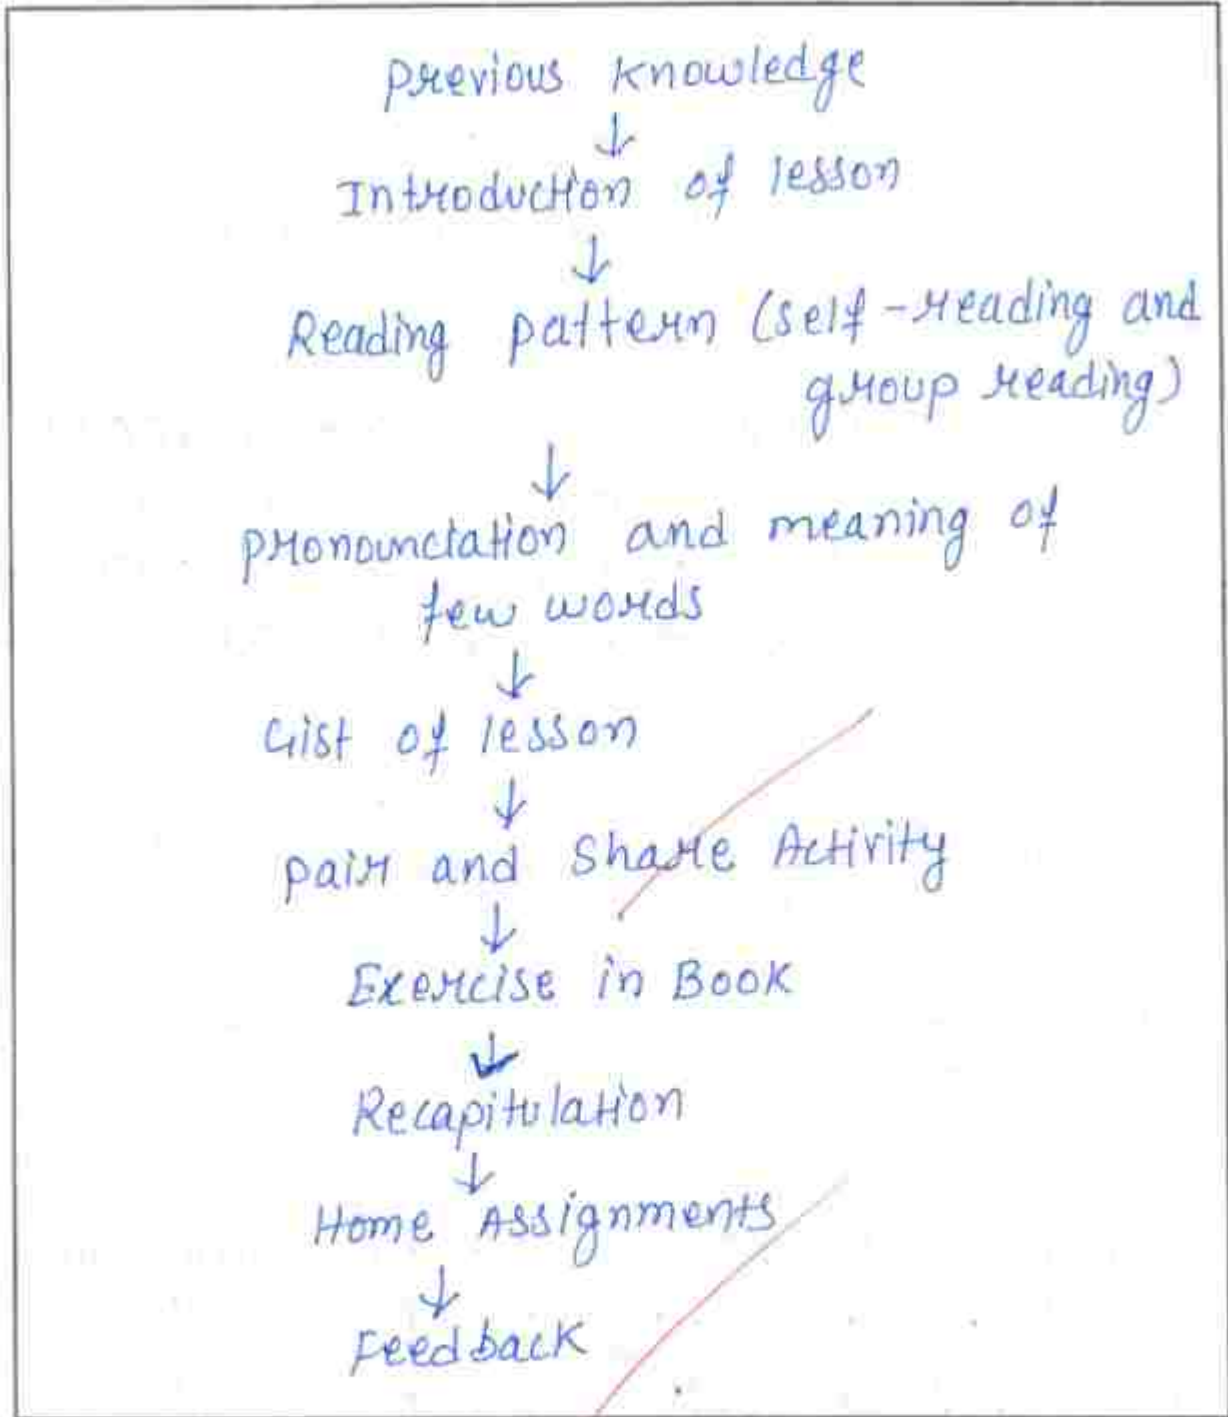 Previous Knowledge
↓
Introduction of lesson
↓
Reading pattern (self-reading and
group reading)
↓
pronounciation and meaning of
few words
↓
Gist of lesson
↓
pair and Share Activity
↓
Exercise in Book
↓
Recapitulation
↓
Home Assignments
↓
Feedback